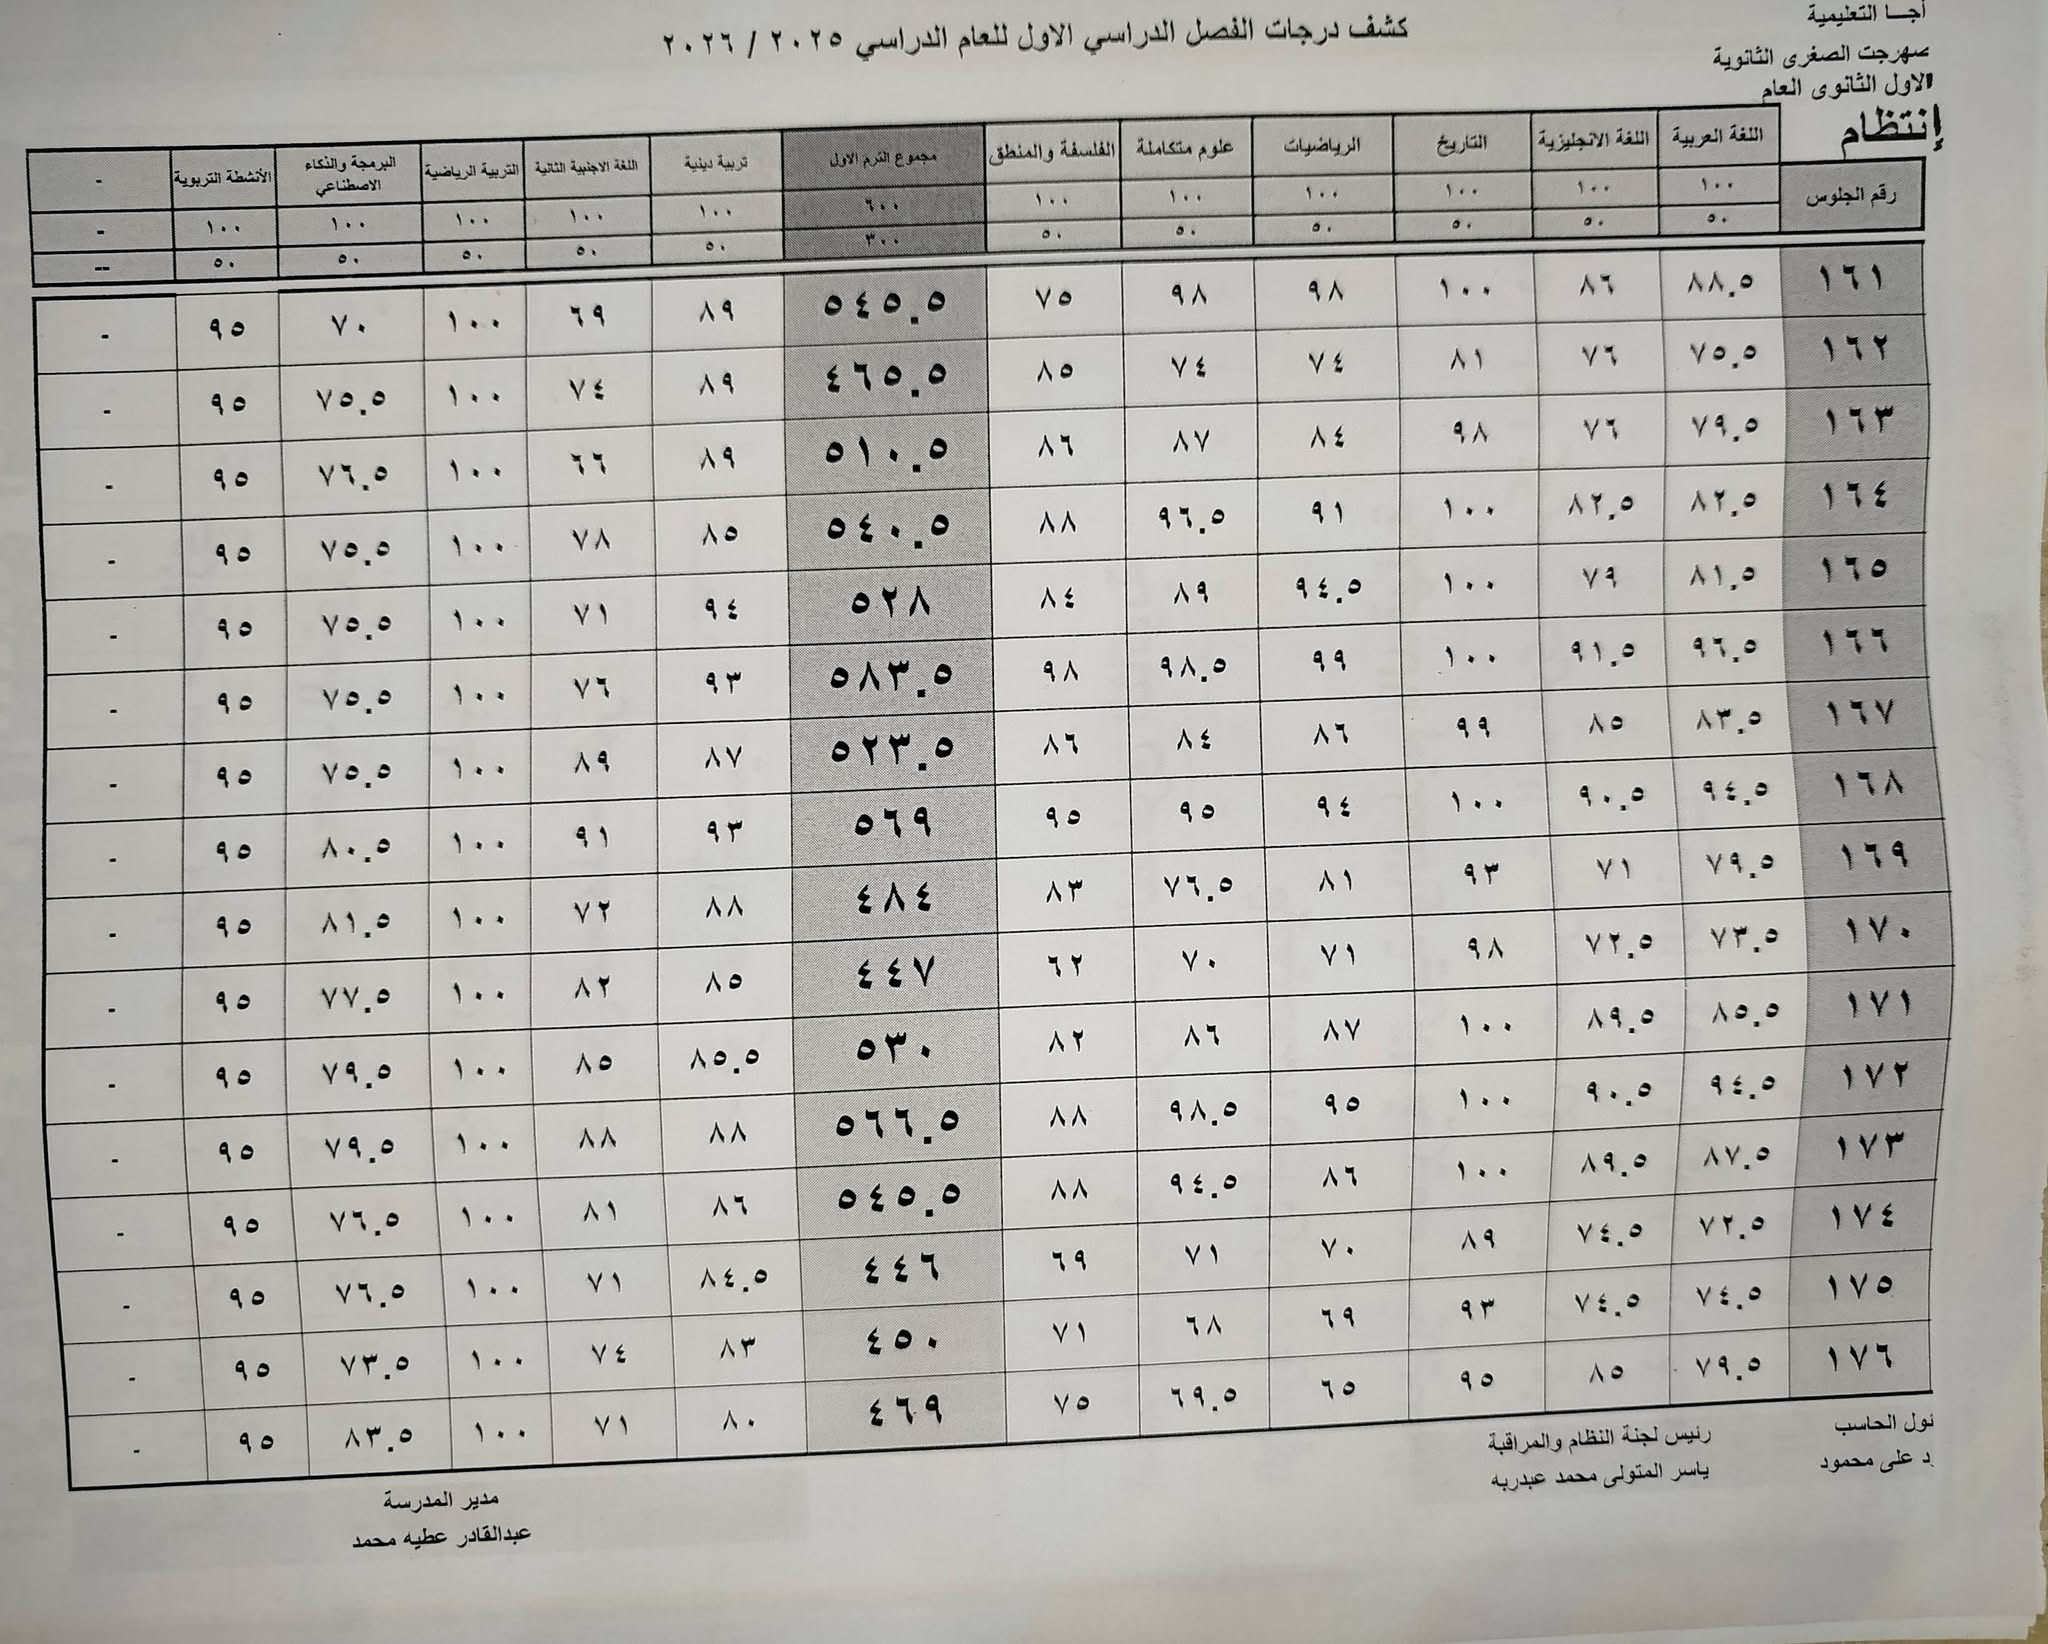 أجـــا التعليمية
كشف درجات الفصل الدراسي الاول للعام الدراسي ٢٠٢٥ / ٢٠٢٦
صهرجت الصغرى الثانوية
الاول الثانوى العام
إنتظام
رقم الجلوس اللغة العربية اللغة الانجليزية التاريخ الرياضيات علوم متكاملة الفلسفة والمنطق مجموع الترم الاول تربية دينية اللغة الاجنبية الثانية التربية الرياضية البرمجة والذكاء الاصطناعي الأنشطة التربوية -
١٠٠ ١٠٠ ١٠٠ ١٠٠ ١٠٠ ١٠٠ ٦٠٠ ١٠٠ ١٠٠ ١٠٠ ١٠٠ ١٠٠ -
٥٠ ٥٠ ٥٠ ٥٠ ٥٠ ٥٠ ٣٠٠ ٥٠ ٥٠ ٥٠ ٥٠ ٥٠ --
١٦١ ٨٨.٥ ٨٦ ١٠٠ ٩٨ ٩٨ ٧٥ ٥٤٥.٥ ٨٩ ٦٩ ١٠٠ ٧٠ ٩٥ -
١٦٢ ٧٥.٥ ٧٦ ٨١ ٧٤ ٧٤ ٨٥ ٤٦٥.٥ ٨٩ ٧٤ ١٠٠ ٧٥.٥ ٩٥ -
١٦٣ ٧٩.٥ ٧٦ ٩٨ ٨٤ ٨٧ ٨٦ ٥١٠.٥ ٨٩ ٦٦ ١٠٠ ٧٦.٥ ٩٥ -
١٦٤ ٨٢.٥ ٨٢.٥ ١٠٠ ٩١ ٩٦.٥ ٨٨ ٥٤٠.٥ ٨٥ ٧٨ ١٠٠ ٧٥.٥ ٩٥ -
١٦٥ ٨١.٥ ٧٩ ١٠٠ ٩٤.٥ ٨٩ ٨٤ ٥٢٨ ٩٤ ٧١ ١٠٠ ٧٥.٥ ٩٥ -
١٦٦ ٩٦.٥ ٩١.٥ ١٠٠ ٩٩ ٩٨.٥ ٩٨ ٥٨٣.٥ ٩٣ ٧٦ ١٠٠ ٧٥.٥ ٩٥ -
١٦٧ ٨٣.٥ ٨٥ ٩٩ ٨٦ ٨٤ ٨٦ ٥٢٣.٥ ٨٧ ٨٩ ١٠٠ ٧٥.٥ ٩٥ -
١٦٨ ٩٤.٥ ٩٠.٥ ١٠٠ ٩٤ ٩٥ ٩٥ ٥٦٩ ٩٣ ٩١ ١٠٠ ٨٠.٥ ٩٥ -
١٦٩ ٧٩.٥ ٧١ ٩٣ ٨١ ٧٦.٥ ٨٣ ٤٨٤ ٨٨ ٧٢ ١٠٠ ٨١.٥ ٩٥ -
١٧٠ ٧٣.٥ ٧٢.٥ ٩٨ ٧١ ٧٠ ٦٢ ٤٤٧ ٨٥ ٨٢ ١٠٠ ٧٧.٥ ٩٥ -
١٧١ ٨٥.٥ ٨٩.٥ ١٠٠ ٨٧ ٨٦ ٨٢ ٥٣٠ ٨٥.٥ ٨٥ ١٠٠ ٧٩.٥ ٩٥ -
١٧٢ ٩٤.٥ ٩٠.٥ ١٠٠ ٩٥ ٩٨.٥ ٨٨ ٥٦٦.٥ ٨٨ ٨٨ ١٠٠ ٧٩.٥ ٩٥ -
١٧٣ ٨٧.٥ ٨٩.٥ ١٠٠ ٨٦ ٩٤.٥ ٨٨ ٥٤٥.٥ ٨٦ ٨١ ١٠٠ ٧٦.٥ ٩٥ -
١٧٤ ٧٢.٥ ٧٤.٥ ٨٩ ٧٠ ٧١ ٦٩ ٤٤٦ ٨٤.٥ ٧١ ١٠٠ ٧٦.٥ ٩٥ -
١٧٥ ٧٤.٥ ٧٤.٥ ٩٣ ٦٩ ٦٨ ٧١ ٤٥٠ ٨٣ ٧٤ ١٠٠ ٧٣.٥ ٩٥ -
١٧٦ ٧٩.٥ ٨٥ ٩٥ ٦٥ ٦٩.٥ ٧٥ ٤٦٩ ٨٠ ٧١ ١٠٠ ٨٣.٥ ٩٥ -
الحاسب رئيس لجنة النظام والمراقبة مدير المدرسة
على محمود ياسر المتولى محمد عبدربه عبدالقادر عطيه محمد